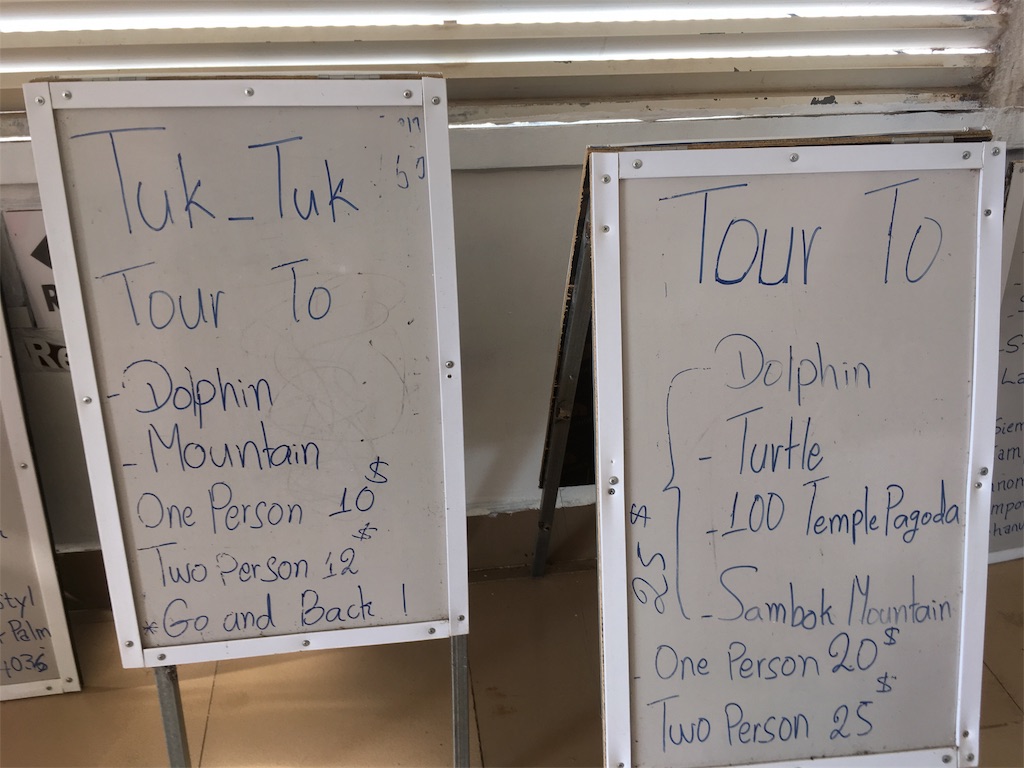 Tuk_Tuk
Tour To
- Dolphin
- Mountain
One Person 10$
Two Person 12$
*Go and Back !
Tour To
Dolphin
- Turtle
- 100 Temple Pagoda
- Sambok Mountain
25 $
- One Person 20$
Two Person 25$
Re
styl
Palm
4036